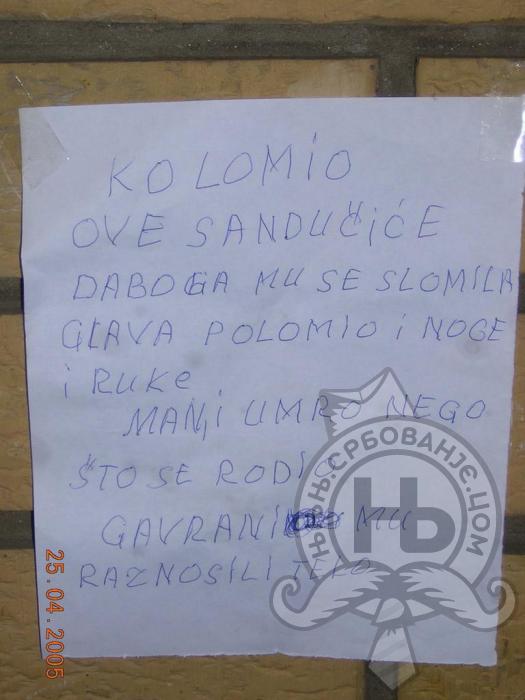 KO LOMIO
OVE SANDUČIĆE
DABOGA MU SE SLOMILA
GLAVA POLOMIO i NOGE
i RUKE
MANJI UMRO NEGO
ŠTO SE RODIO
GAVRANI MU
RAZNOSILI TELO
25.04.2005
њњњ.СРБОВАЊЕ.ЦОМ
Њ